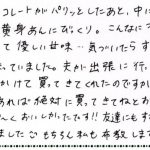 コレートがパリッとしたあと、中に
黄身あんにびっくり。こんなに
て優しい甘味…気づいたらす
ていました。夫が出張に行
かけて買ってきてくれたのですが
あれば絶対に買ってきてねとお
んくおいしかったです!!友達にもす
ました。もちろん私も